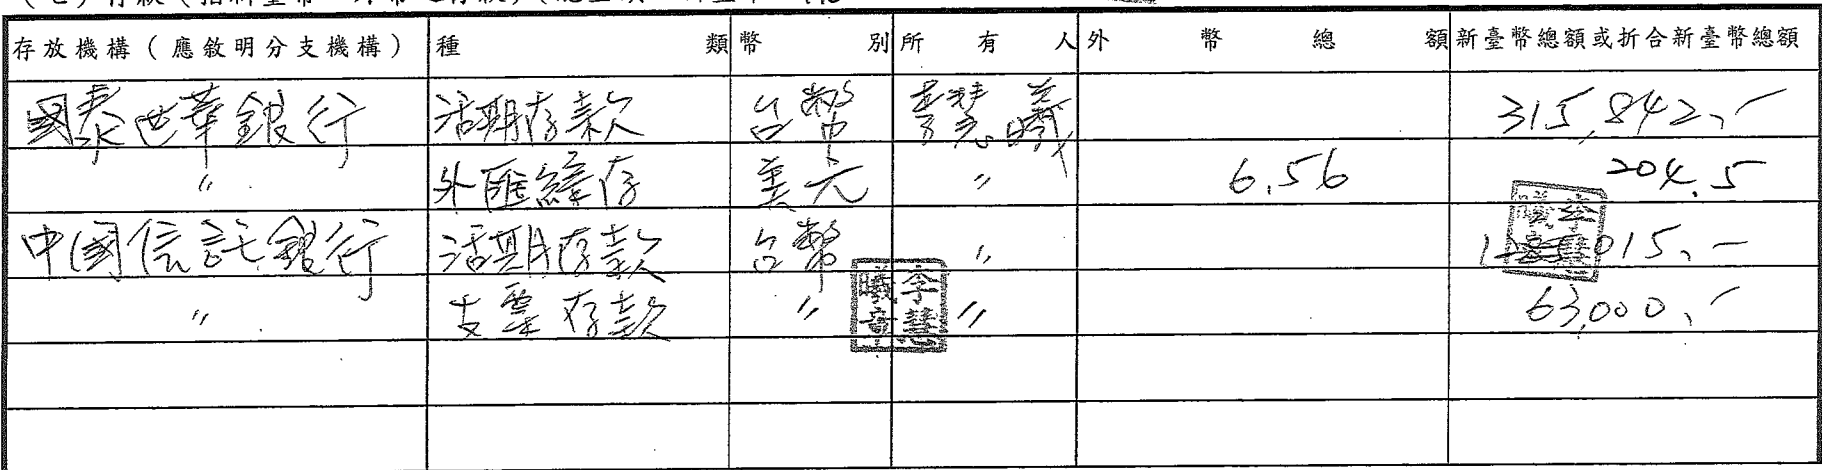 存放機構（應敘明分支機構） 種類 幣別 所有人 外幣總額 新臺幣總額或折合新臺幣總額
國泰世華銀行 活期存款 台幣 李慧曦 315,842、-
〃 外匯綜存 美元 〃 6.56 204.5
中國信託銀行 活期存款 台幣 〃 015、-
〃 支票存款 〃 〃 63,000、-
李慧曦章